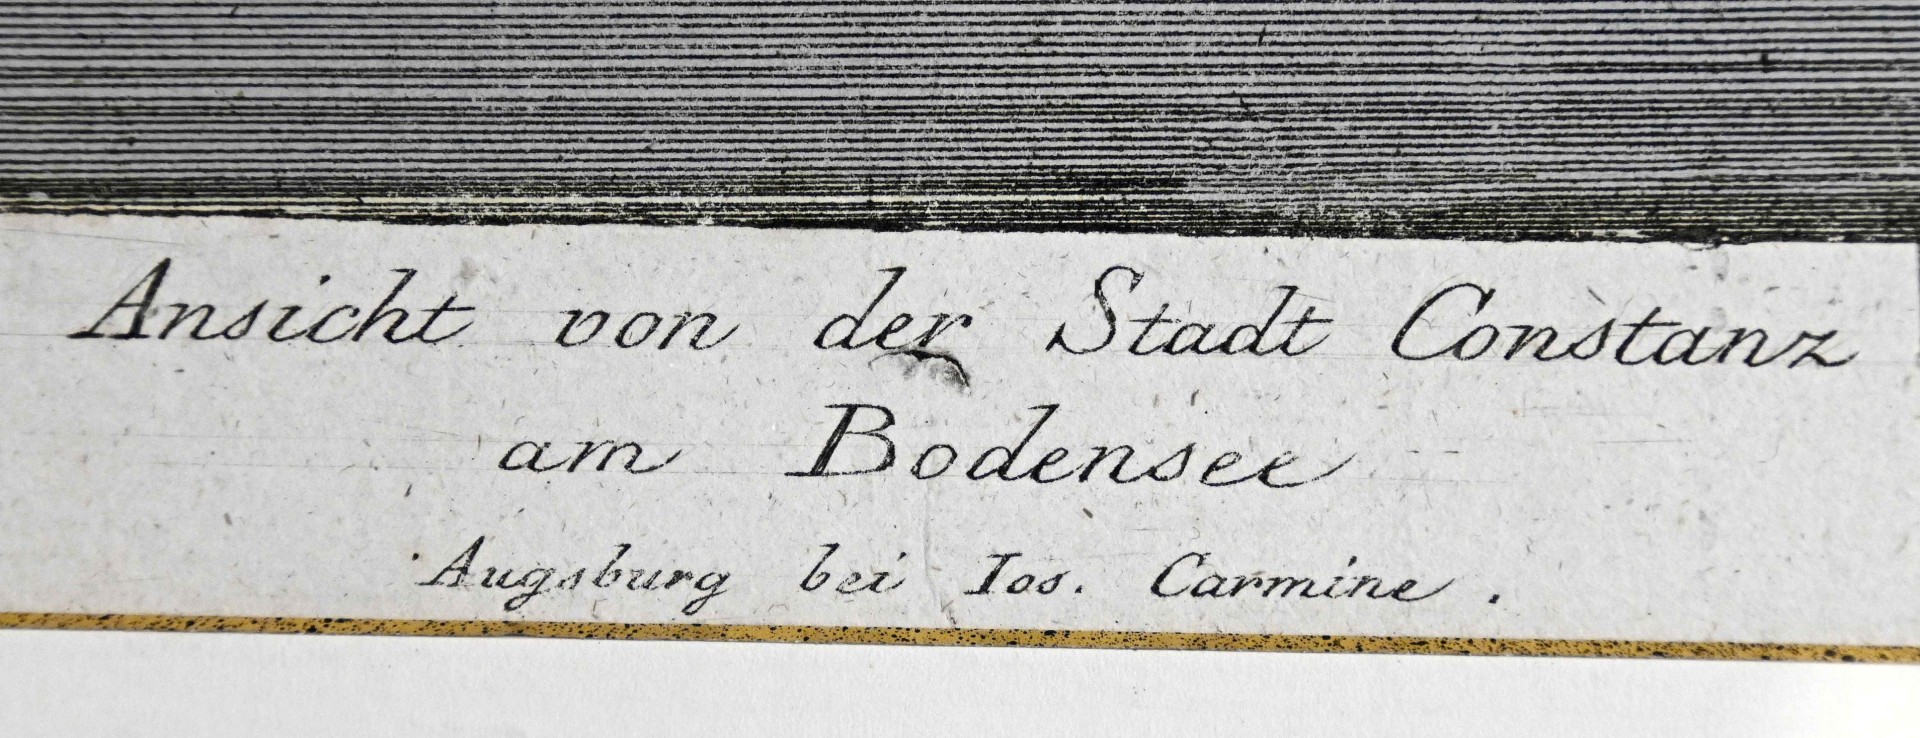 Ansicht von der Stadt Constanz
am Bodensee
Augsburg bei Ios. Carmine.